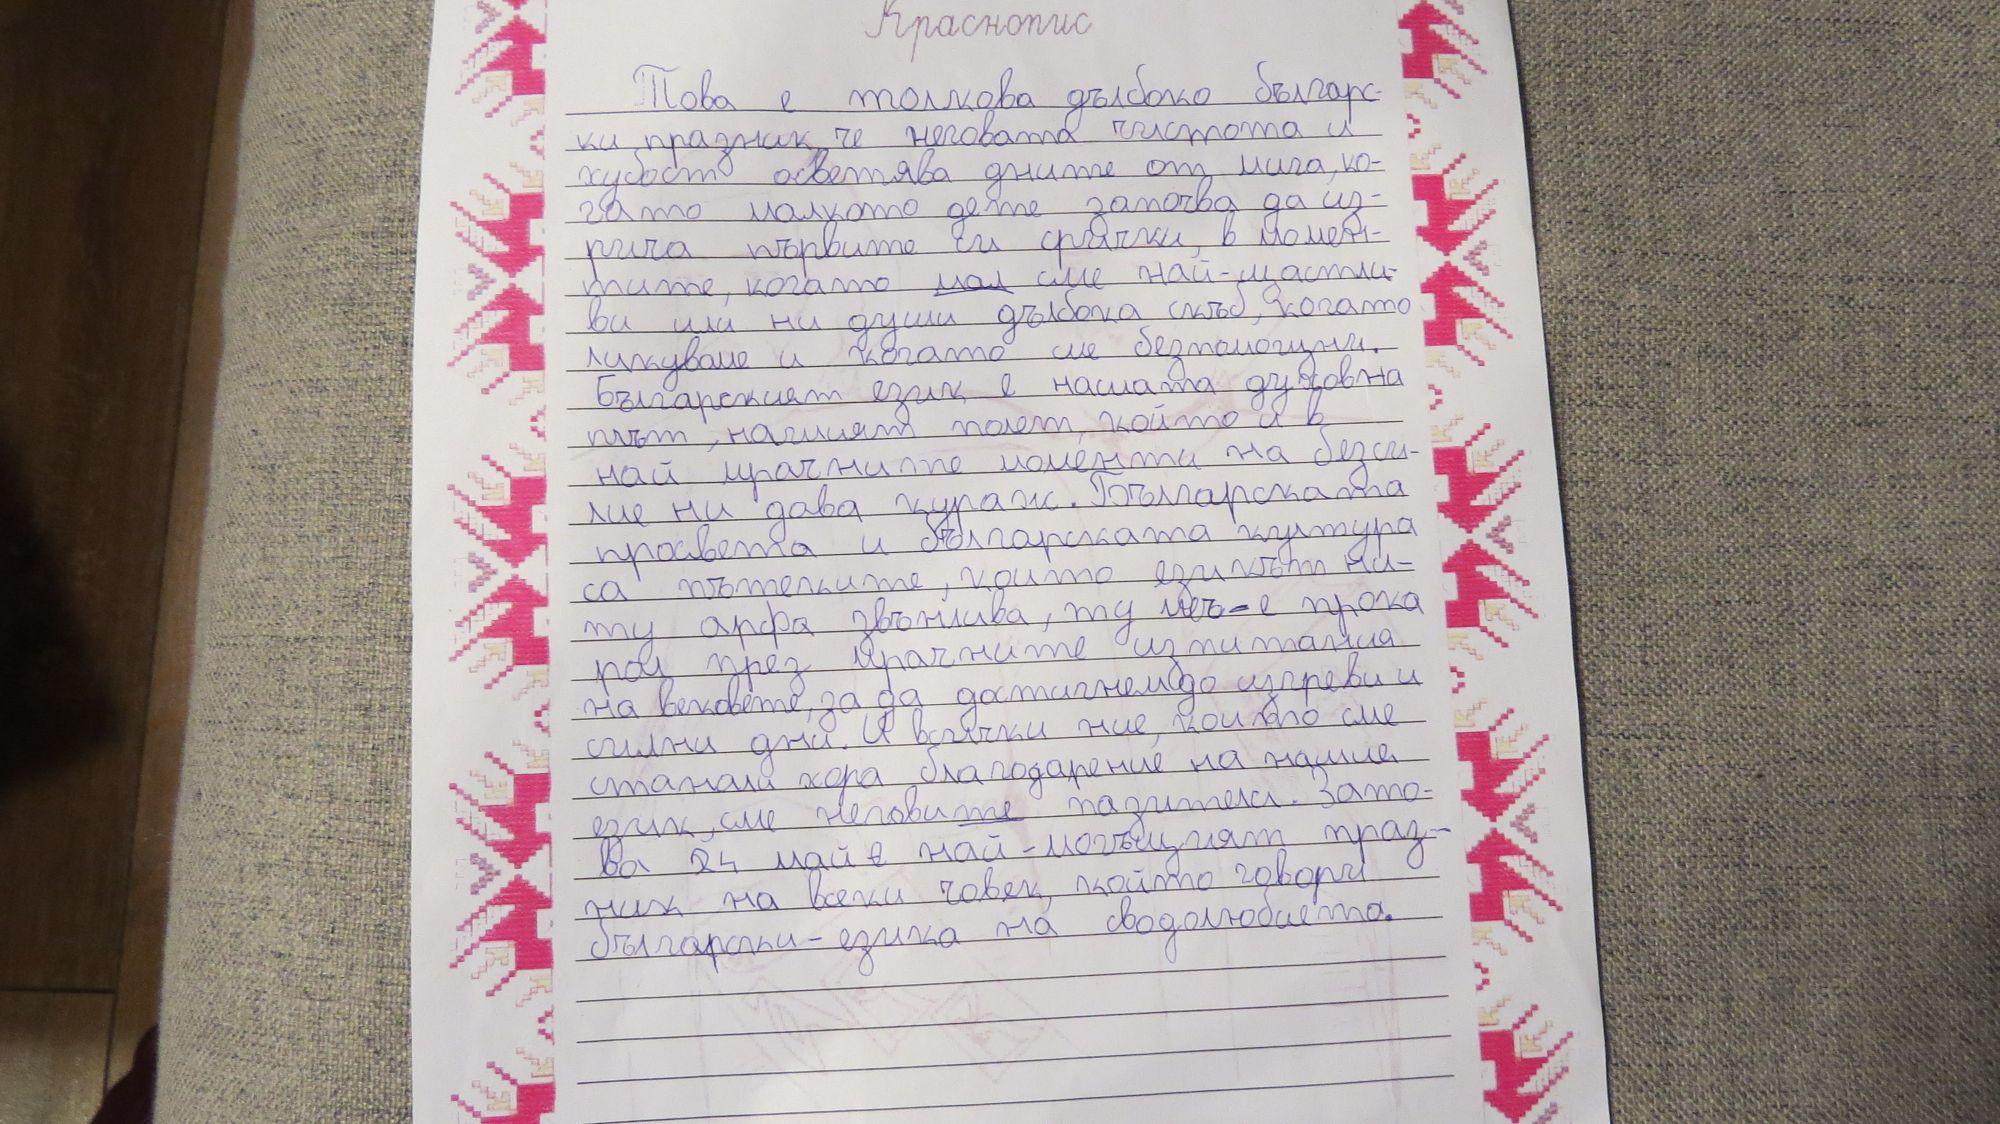 Краснопис
Това е толкова дълбоко българс-
ки празник, че неговата чистота и
хубост осветява дните от мига, ко-
гато малкото дете започва да из-
рича първите си срички, в момен-
тите, когато сме най-щастли-
ви или ни души дълбока скръб, когато
ликуваме и когато сме безпомощни.
Българският език е нашата духовна
плът, нашият полет, който и в
най мрачните моменти на безси-
лие ни дава кураж. Българската
просвета и българската култура
са пътеките, които езикът ни-
ту арфа звънлива, ту меч-е прока
рал през мрачните изпитания
на вековете, за да достигнем до изгреви и
силни дни. И всички ние, които сме
станали хора благодарение на нашия
език, сме неговите пазители. Зато-
ва 24 май е най-могъщият праз-
ник на всеки човек, който говори
български-езика на свободолюбието.